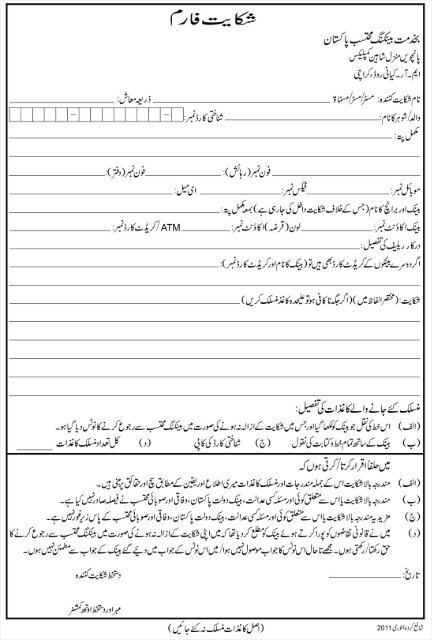 شکایت فارم
بخدمت بینکنگ محتسب پاکستان
پانچویں منزل شاہین کمپلیکس
ایم۔ آر۔ کیانی روڈ، کراچی
نام شکایت کنندہ: مسٹر/مسز/مسماۃ ذریعہ معاش:
والد/شوہر کا نام: شناختی کارڈ نمبر:
مکمل پتہ:
فون نمبر (رہائش): فون نمبر (دفتر):
موبائل نمبر: فیکس نمبر: ای میل:
بینک اور برانچ کا نام (جس کے خلاف شکایت داخل کی جارہی ہے) بمعہ مکمل پتہ:
بینک اکاؤنٹ نمبر: لون (قرضہ) اکاؤنٹ نمبر: ATM/کریڈٹ کارڈ نمبر:
درکار ریلیف کی تفصیل:
اگر دوسرے بینکوں کے کریڈٹ کارڈ بھی ہیں تو (بینک کا نام اور کریڈٹ کارڈ نمبر):
شکایت: (مختصر الفاظ میں) (اگر جگہ ناکافی ہو تو علیحدہ کاغذ منسلک کریں)
منسلک کئے جانے والے کاغذات کی تفصیل:
(الف) اس خط کی نقل جو بینک کو لکھا گیا اور جس میں شکایت کے ازالہ نہ ہونے کی صورت میں بینکنگ محتسب سے رجوع کرنے کا نوٹس دیا گیا ہو۔
(ب) بینک کے ساتھ تمام خط و کتابت کی نقول (ج) شناختی کارڈ کی کاپی (د) کل تعداد منسلک کاغذات
میں حلفاً اقرار کرتا/کرتی ہوں کہ
(الف) مندرجہ بالا شکایت کے جملہ مندرجات اور منسلک کاغذات میری اطلاع اور یقین کے مطابق سچ اور حقائق پر مبنی ہیں۔
(ب) مندرجہ بالا شکایت یا اس سے متعلق کوئی اور مسئلہ کسی عدالت، بینک دولت پاکستان، وفاقی اور صوبائی محتسب نے فیصلہ صادر نہیں کیا ہے۔
(ج) مزید یہ مندرجہ بالا شکایت یا اس سے متعلق کوئی اور مسئلہ کسی عدالت، بینک دولت پاکستان، وفاقی اور صوبائی محتسب کے پاس زیر غور نہیں ہے۔
(د) میں نے قانونی تقاضوں کو پورا کرتے ہوئے بینک کو مطلع کردیا تھا کہ میں اپنی شکایت کے ازالہ نہ ہونے کی صورت میں بینکنگ محتسب سے رجوع کرنے کا
حق رکھتا/رکھتی ہوں۔ مجھے تاحال اس نوٹس کا جواب موصول نہیں ہوا/میں اس نوٹس کے جواب میں دیے گئے بینک کے جواب سے مطمئن نہیں ہوں۔
تاریخ: دستخط شکایت کنندہ
مہر اور دستخط اوتھ کمشنر
(اصل کاغذات منسلک نہ کئے جائیں)
شائع کردہ جنوری 2011